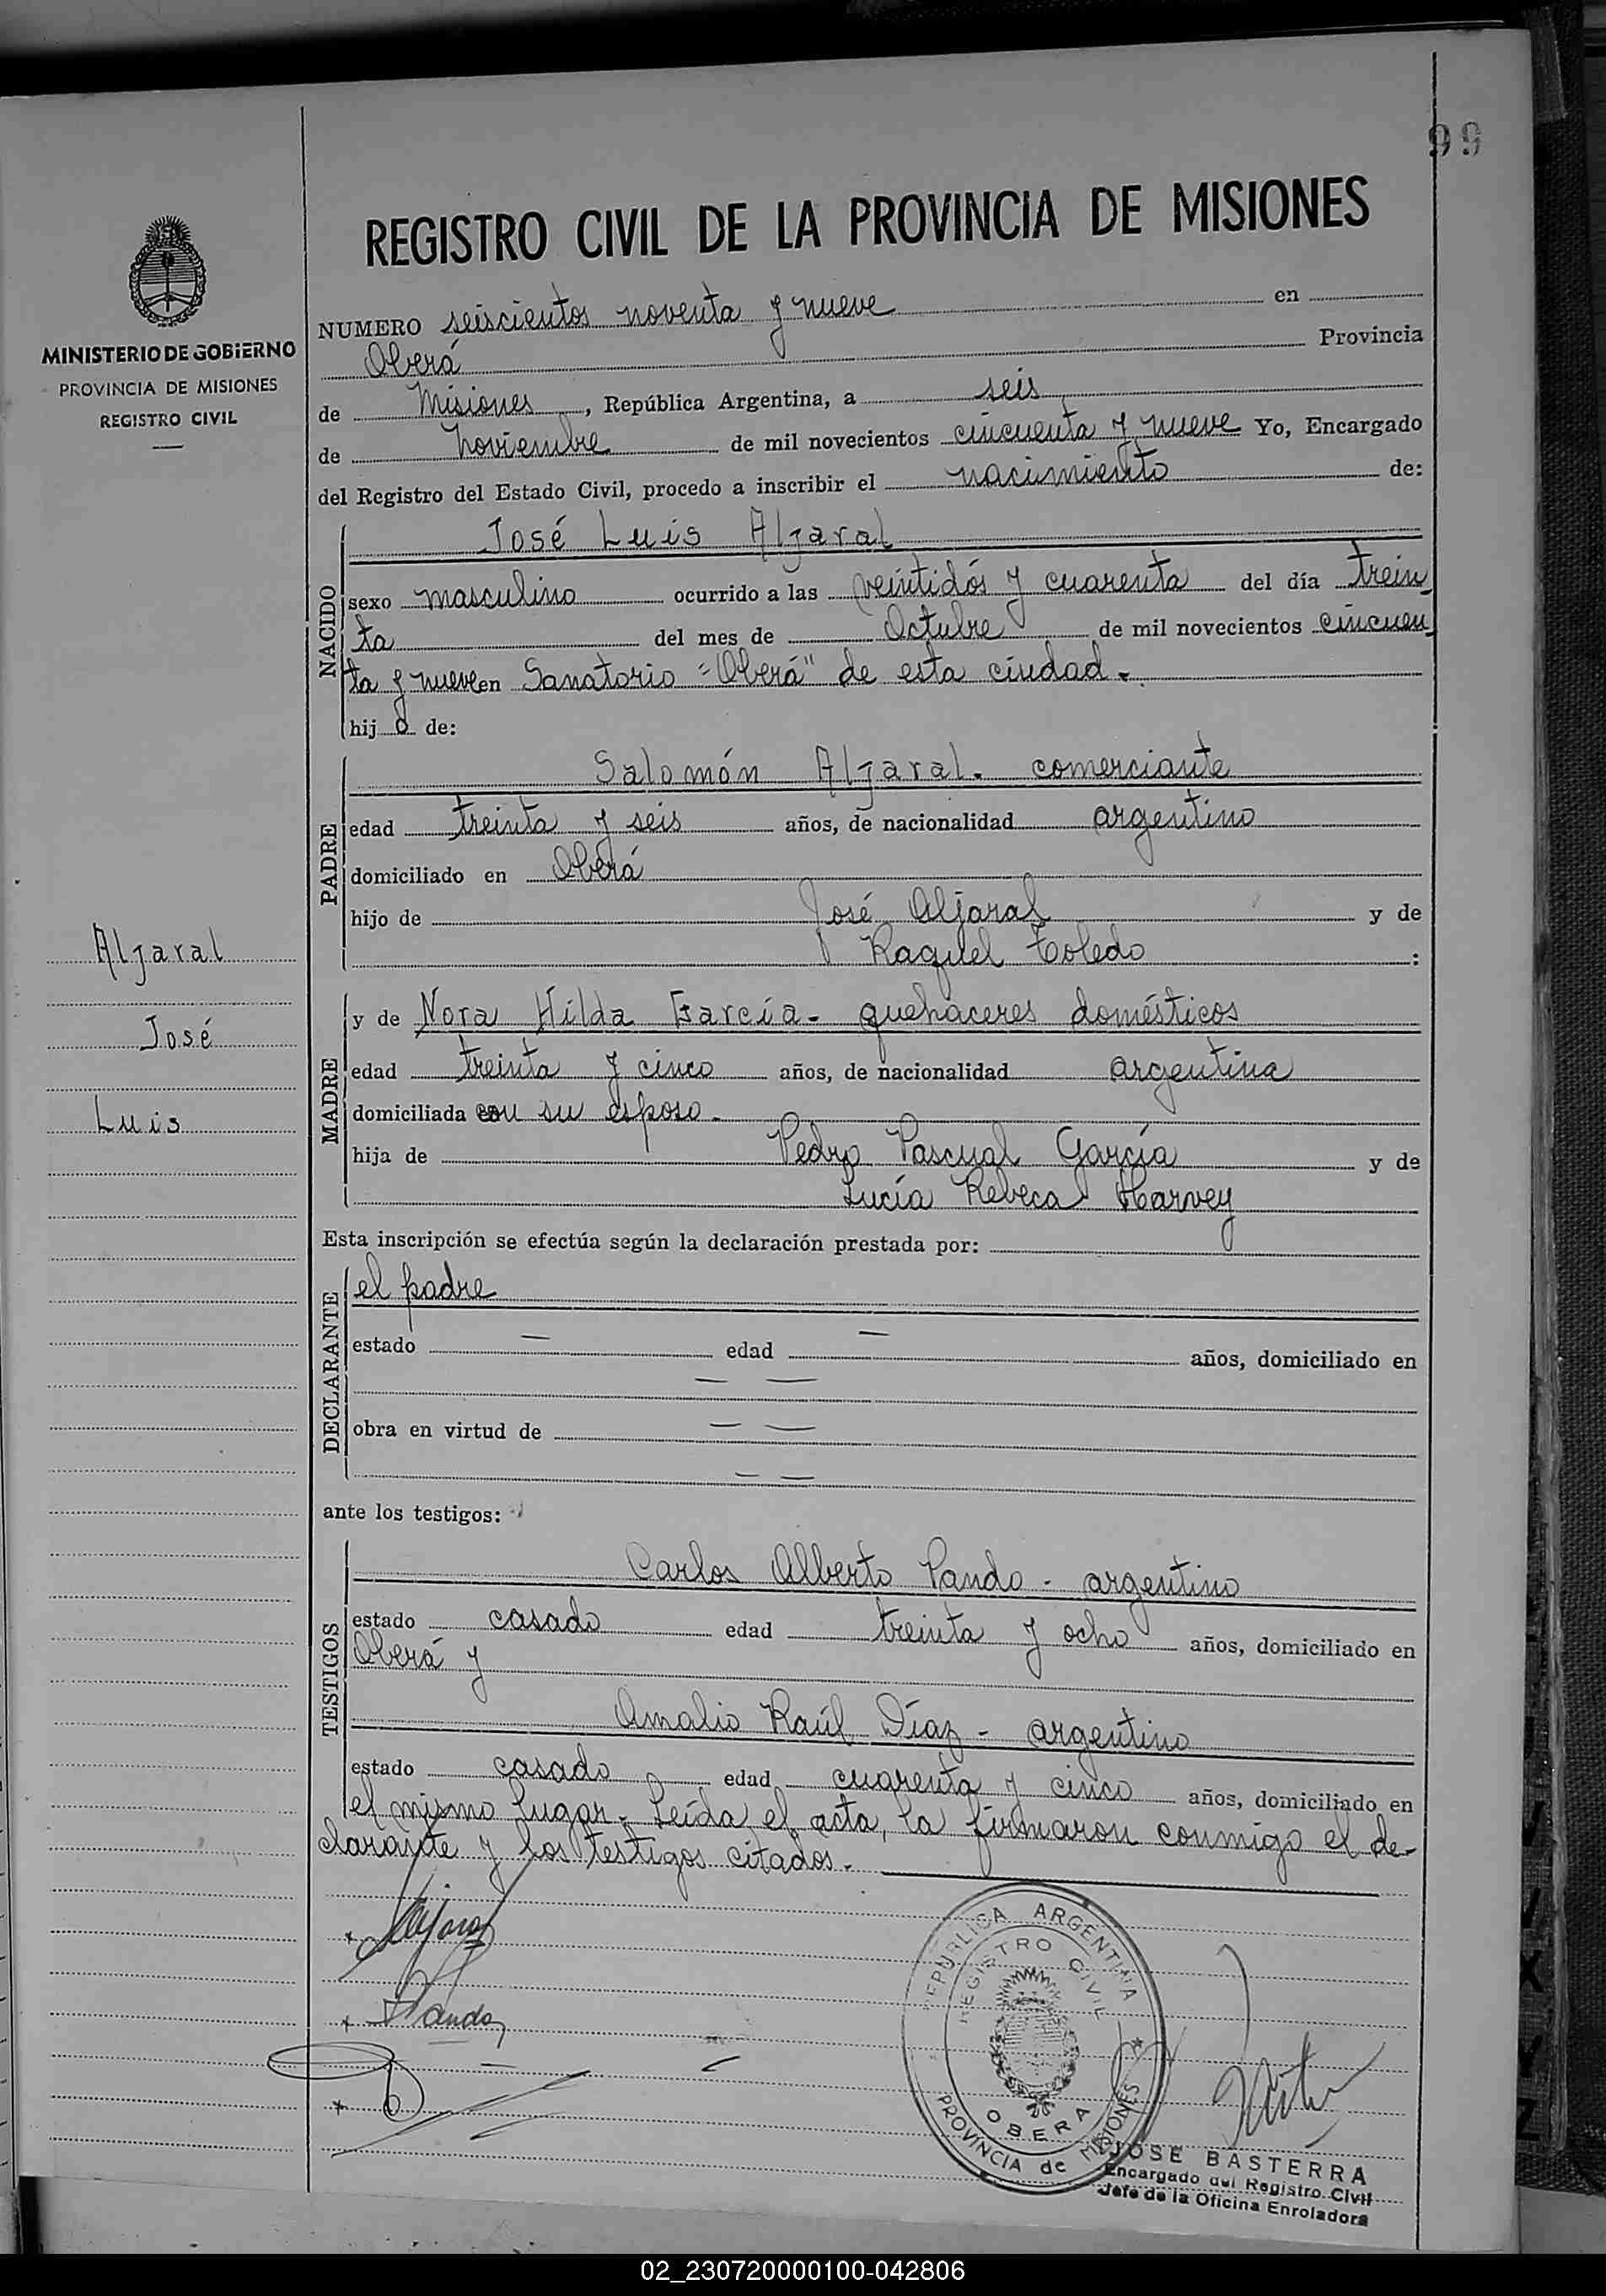 99
REGISTRO CIVIL DE LA PROVINCIA DE MISIONES
MINISTERIO DE GOBIERNO
PROVINCIA DE MISIONES
REGISTRO CIVIL
NUMERO seiscientos noventa y nueve en
Oberá Provincia
de Misiones, República Argentina, a seis
de noviembre de mil novecientos cincuenta y nueve Yo, Encargado
del Registro del Estado Civil, procedo a inscribir el nacimiento de:
NACIDO
José Luis Aljaral
sexo masculino ocurrido a las veintidós y cuarenta del día trein
ta del mes de Octubre de mil novecientos cincuen
ta y nueve en Sanatorio "Oberá" de esta ciudad.
hijo de:
PADRE
Salomón Aljaral. comerciante
edad treinta y seis años, de nacionalidad argentino
domiciliado en Oberá
hijo de José Aljaral y de
Raquel Toledo :
Aljaral
José
Luis
MADRE
y de Nora Hilda García - quehaceres domésticos
edad treinta y cinco años, de nacionalidad argentina
domiciliada con su esposo.
hija de Pedro Pascual García y de
Lucía Rebeca Harvey
Esta inscripción se efectúa según la declaración prestada por:
DECLARANTE
el padre
estado — edad — años, domiciliado en
— —
obra en virtud de — —
— —
ante los testigos:
TESTIGOS
Carlos Alberto Pando - argentino
estado casado edad treinta y ocho años, domiciliado en
Oberá y
Amalio Raúl Díaz - argentino
estado casado edad cuarenta y cinco años, domiciliado en
el mismo lugar. Leída el acta, la firmaron conmigo el de-
clarante y los testigos citados.
x Aljaral
x Pando
x
REPUBLICA ARGENTINA
REGISTRO CIVIL
OBERA
PROVINCIA de MISIONES
JOSE BASTERRA
Encargado del Registro Civil
Jefe de la Oficina Enroladora
02_230720000100-042806